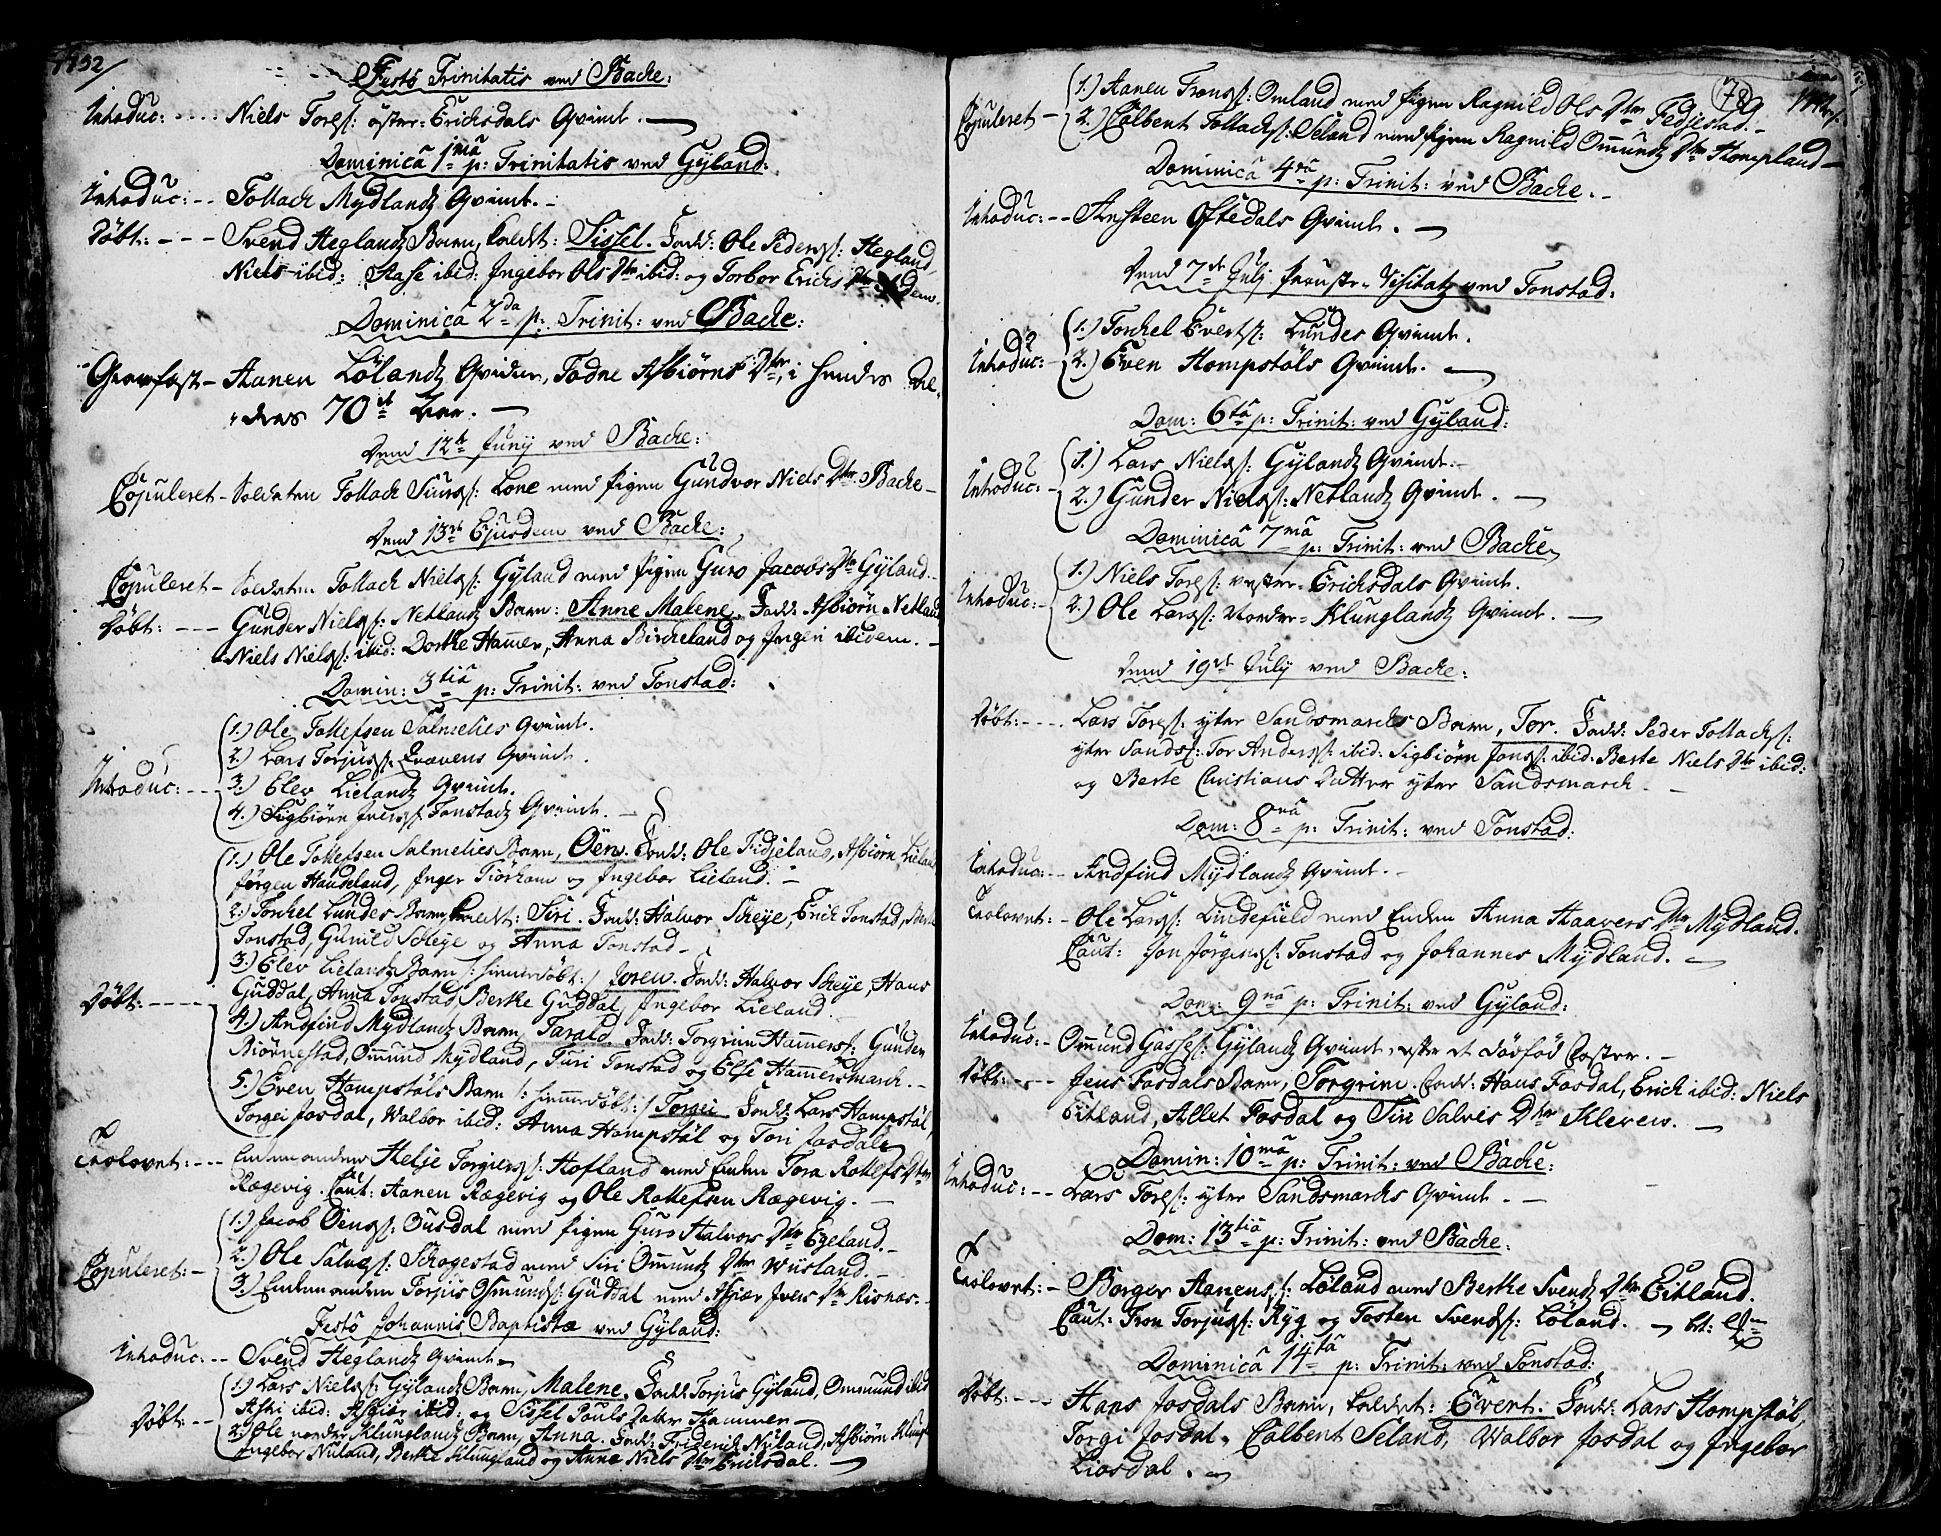 1752/
Festo Trinitatis ved Backe:
Introduc: ---- Niels Toresß: öster-Erichsdals Qvinde. —
Dominicâ 1mâ p: Trinitatis ved Gyland:
Introduc: -- Tollach Mydlandz Qvinde. -
Döbt: --- Svend Heglandz Barn, kaldet: Sissel. Fadd: Ole Pedersß: Hegland
Niels ibid: Aase ibid: Ingebor Ols Dtr ibid: og Torbor Erichs Dtr
Dominicâ 2da p: Trinit: ved Backe:
Gravfæst - Aanen Lölandz Qvinde, Todne Asbiörns Dtr, i hendes
70de Aar. —
Dend 12te Junij ved Backe:
Copuleret - Soldaten Tollach Siursß: Lone med Pigen Gundvor Niels Dtr Backe -
Dend 13de Ejusdem ved Backe:
Copuleret - Soldaten Tollach Nielsß: Gyland med Pigen Guro Jacobs Dtr Gyland. -
Döbt: --- Gunder Nielsß: Netlandz Barn: Anne Malene. Fadd: Asbiörn Netland
Niels Nielsß: ibid: Dorthe Hamer, Anna Bircheland og Ingeri ibidem. -
Domin: 3tiâ p: Trinit: ved Tonstad:
1.) Ole Tollefsen Salmelies Qvinde.
2.) Lars Torjusß: Qvævens Qvinde.
Introduc: --- 3.) Elev Lielandz Qvinde.
4.) Sigbiörn Iversß: Tonstadz Qvinde. —
1.) Ole Tollefsen Salmelies Barn, Öen. Fadd: Ole Fidjeland, Asbiörn Lieland
Jörgen Haugeland, Inger Tiorham og Ingebor Lieland. -
2.) Torchel Lundes Barn, kaldet: Siri. Fadd: Halvor Scheye, Erich Tonstad,
Tonstad, Gunild Scheye og Anna Tonstad -
3.) Elev Lielandz Barn /: hiemmedöbt :/ Joren. Fadd: Halvor Scheye, Hans
Döbt: ---- Guddal, Anna Tonstad, Berthe Guddal, Ingebor Lieland.
4.) Andfind Mydlandz Barn, Tarald. Fadd: Torgrim Hamersß: Gunder
Biörnestad, Omund Mydland, Turi Tonstad og Else Hamersmarch. -
5.) Even Hompstöls Barn /: hiemmedöbt :/ Torgei. Fadd: Lars Hompstöl,
Torgei Josdal, Walbor ibid: Anna Hompstöl og Tori Josdal.
Trolovet: --- Enkemanden Helje Torgiersß: Hofland med Enken Tora Rollefs Dtr
Rægevig. Caut: Aanen Rægevig og Ole Rollefsen Rægevig. -
1.) Jacob Öensß: Ousdal med Pigen Guro Halvors Dtr Egeland. -
Copuleret: - 2.) Ole Salvesß: Schogestad med Siri Omundz Dtr Wiisland. -
3.) Enkemanden Torjus Osmundsß: Guddal med Asgiær Ivers Dtr Risnæs. -
Festo Johannis Baptistæ ved Gyland:
Introduc: -- Svend Heglandz Qvinde. -
1.) Lars Nielsß: Gylandz Barn, Malene. Fadd: Torjus Gyland, Omund ibid
Döbt: -- Astri ibid: Asbiör ibid: og Sissel Pouls Datter Hammer -
2.) Ole nordre Klunglandz Barn, Anna. Fadd: Friderich Nuland, Asbiörn Klungl
Ingebor Nuland, Berthe Klungland og Anne Niels Dtr Erichsdal. —
78
Copuleret - 1.) Aanen Tronsß: Omland med Pigen Ragnild Ols Dtr Fedjestad. -
2.) Colbent Tollachsß: Seland med Pigen Ragnild Omundz Dtr Hompland -
Dominicâ 4tâ p: Trinit: ved Backe. -
Introduc: -- Ansteen Oftedals Qvinde. —
Dend 7de Julj Provste-Visitatz ved Tonstad:
Introduc: 1.) Torchel Evertsß: Lundes Qvinde.
2.) Even Hompstöls Qvinde. —
Dom: 6tâ p: Trinit: ved Gyland:
Introduc: - 1.) Lars Nielsß: Gylandz Qvinde. -
2.) Gunder Nielsß: Netlandz Qvinde. —
Dominicâ 7mâ p: Trinit: ved Backe
Introduc: - 1.) Niels Toresß: vester-Erichsdals Qvinde.
2.) Ole Larsß: Nordre-Klunglandz Qvinde. —
Dend 19de July ved Backe:
Döbt: ---- Lars Toresß: yttre Sandsmarchs Barn, Tor. Fadd: Peder Tollachsß:
yttre Sandsß: Tor Andersß: ibid: Sigbiörn Jonsß: ibid: Berte Niels Dtr ibid:
og Berte Christians Datter yttre Sandsmarch. -
Dom: 8vâ p: Trinit: ved Tonstad:
Introduc: -- Andfind Mydlandz Qvinde. -
Trolovet: - Ole Larsß: Lindefield med Enken Anna Haavers Dtr Mydland.
Caut: Jon Jörgensß: Tonstad og Johannes Mydland. —
Dom: 9nâ p: Trinit: ved Gyland:
Introduc: - Omund Gassesß: Gylandz Qvinde, efter et dödfød Foster. -
Döbt: --- Jens Fosdals Barn, Torgrim. Fadd: Hans Fosdal, Erich ibid: Niels
Eitland, Allet Fosdal og Siri Salves Dtr Kleven. —
Domin: 10mâ p: Trinit: ved Backe:
Introduc: -- Lars Toresß: yttre Sandsmarchs Qvinde. -
Dom: 13tiâ p: Trinit: ved Backe:
Trolovet: - Börger Aanensß: Löland med Berthe Svendz Dtr Eitland.
Caut: Tron Torjusß: Ryg og Tosten Svendsß: Löland. —
Dominicâ 14tâ p: Trinit: ved Tonstad:
Döbt: --- Hans Josdals Barn, kaldet: Evert. Fadd: Lars Hompstöl,
Torgi Josdal, Colbent Seland, Walbor Josdal og Ingebor
Liosdal. —